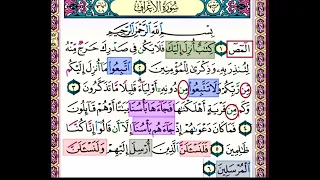 سُورَةُ الأَعْرَافِ
بِسْمِ اللَّهِ الرَّحْمَٰنِ الرَّحِيمِ
الٓمٓصٓ ١ كِتَٰبٌ أُنزِلَ إِلَيْكَ فَلَا يَكُن فِى صَدْرِكَ حَرَجٌ مِّنْهُ
لِتُنذِرَ بِهِۦ وَذِكْرَىٰ لِلْمُؤْمِنِينَ ٢ ٱتَّبِعُوا۟ مَآ أُنزِلَ إِلَيْكُم
مِّن رَّبِّكُمْ وَلَا تَتَّبِعُوا۟ مِن دُونِهِۦٓ أَوْلِيَآءَ قَلِيلًا مَّا تَذَكَّرُونَ ٣
وَكَم مِّن قَرْيَةٍ أَهْلَكْنَٰهَا فَجَآءَهَا بَأْسُنَا بَيَٰتًا أَوْ هُمْ قَآئِلُونَ
٤ فَمَا كَانَ دَعْوَىٰهُمْ إِذْ جَآءَهُم بَأْسُنَآ إِلَّآ أَن قَالُوٓا۟ إِنَّا كُنَّا
ظَٰلِمِينَ ٥ فَلَنَسْـَٔلَنَّ ٱلَّذِينَ أُرْسِلَ إِلَيْهِمْ وَلَنَسْـَٔلَنَّ
ٱلْمُرْسَلِينَ ٦